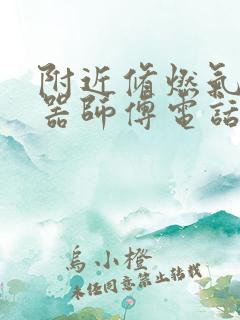 附近修燃氣
器師傅電話
烏小橙
未經同意禁止轉載